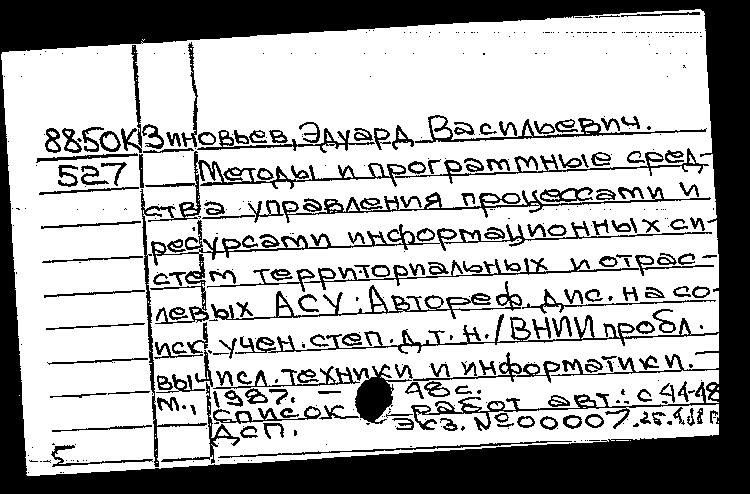 88.50К Зиновьев, Эдуард Васильевич.
527 Методы и программные сред-
ства управления процессами и
ресурсами информационных си-
стем территориальных и отрас-
левых АСУ: Автореф. дис. на со-
иск. учен. степ. д. т. н. / ВНИИ пробл.
вычисл. техники и информатики. –
М., 1987. – 48 с.
Список работ авт.: с. 44-48
ДСП. Экз. № 00007.
5